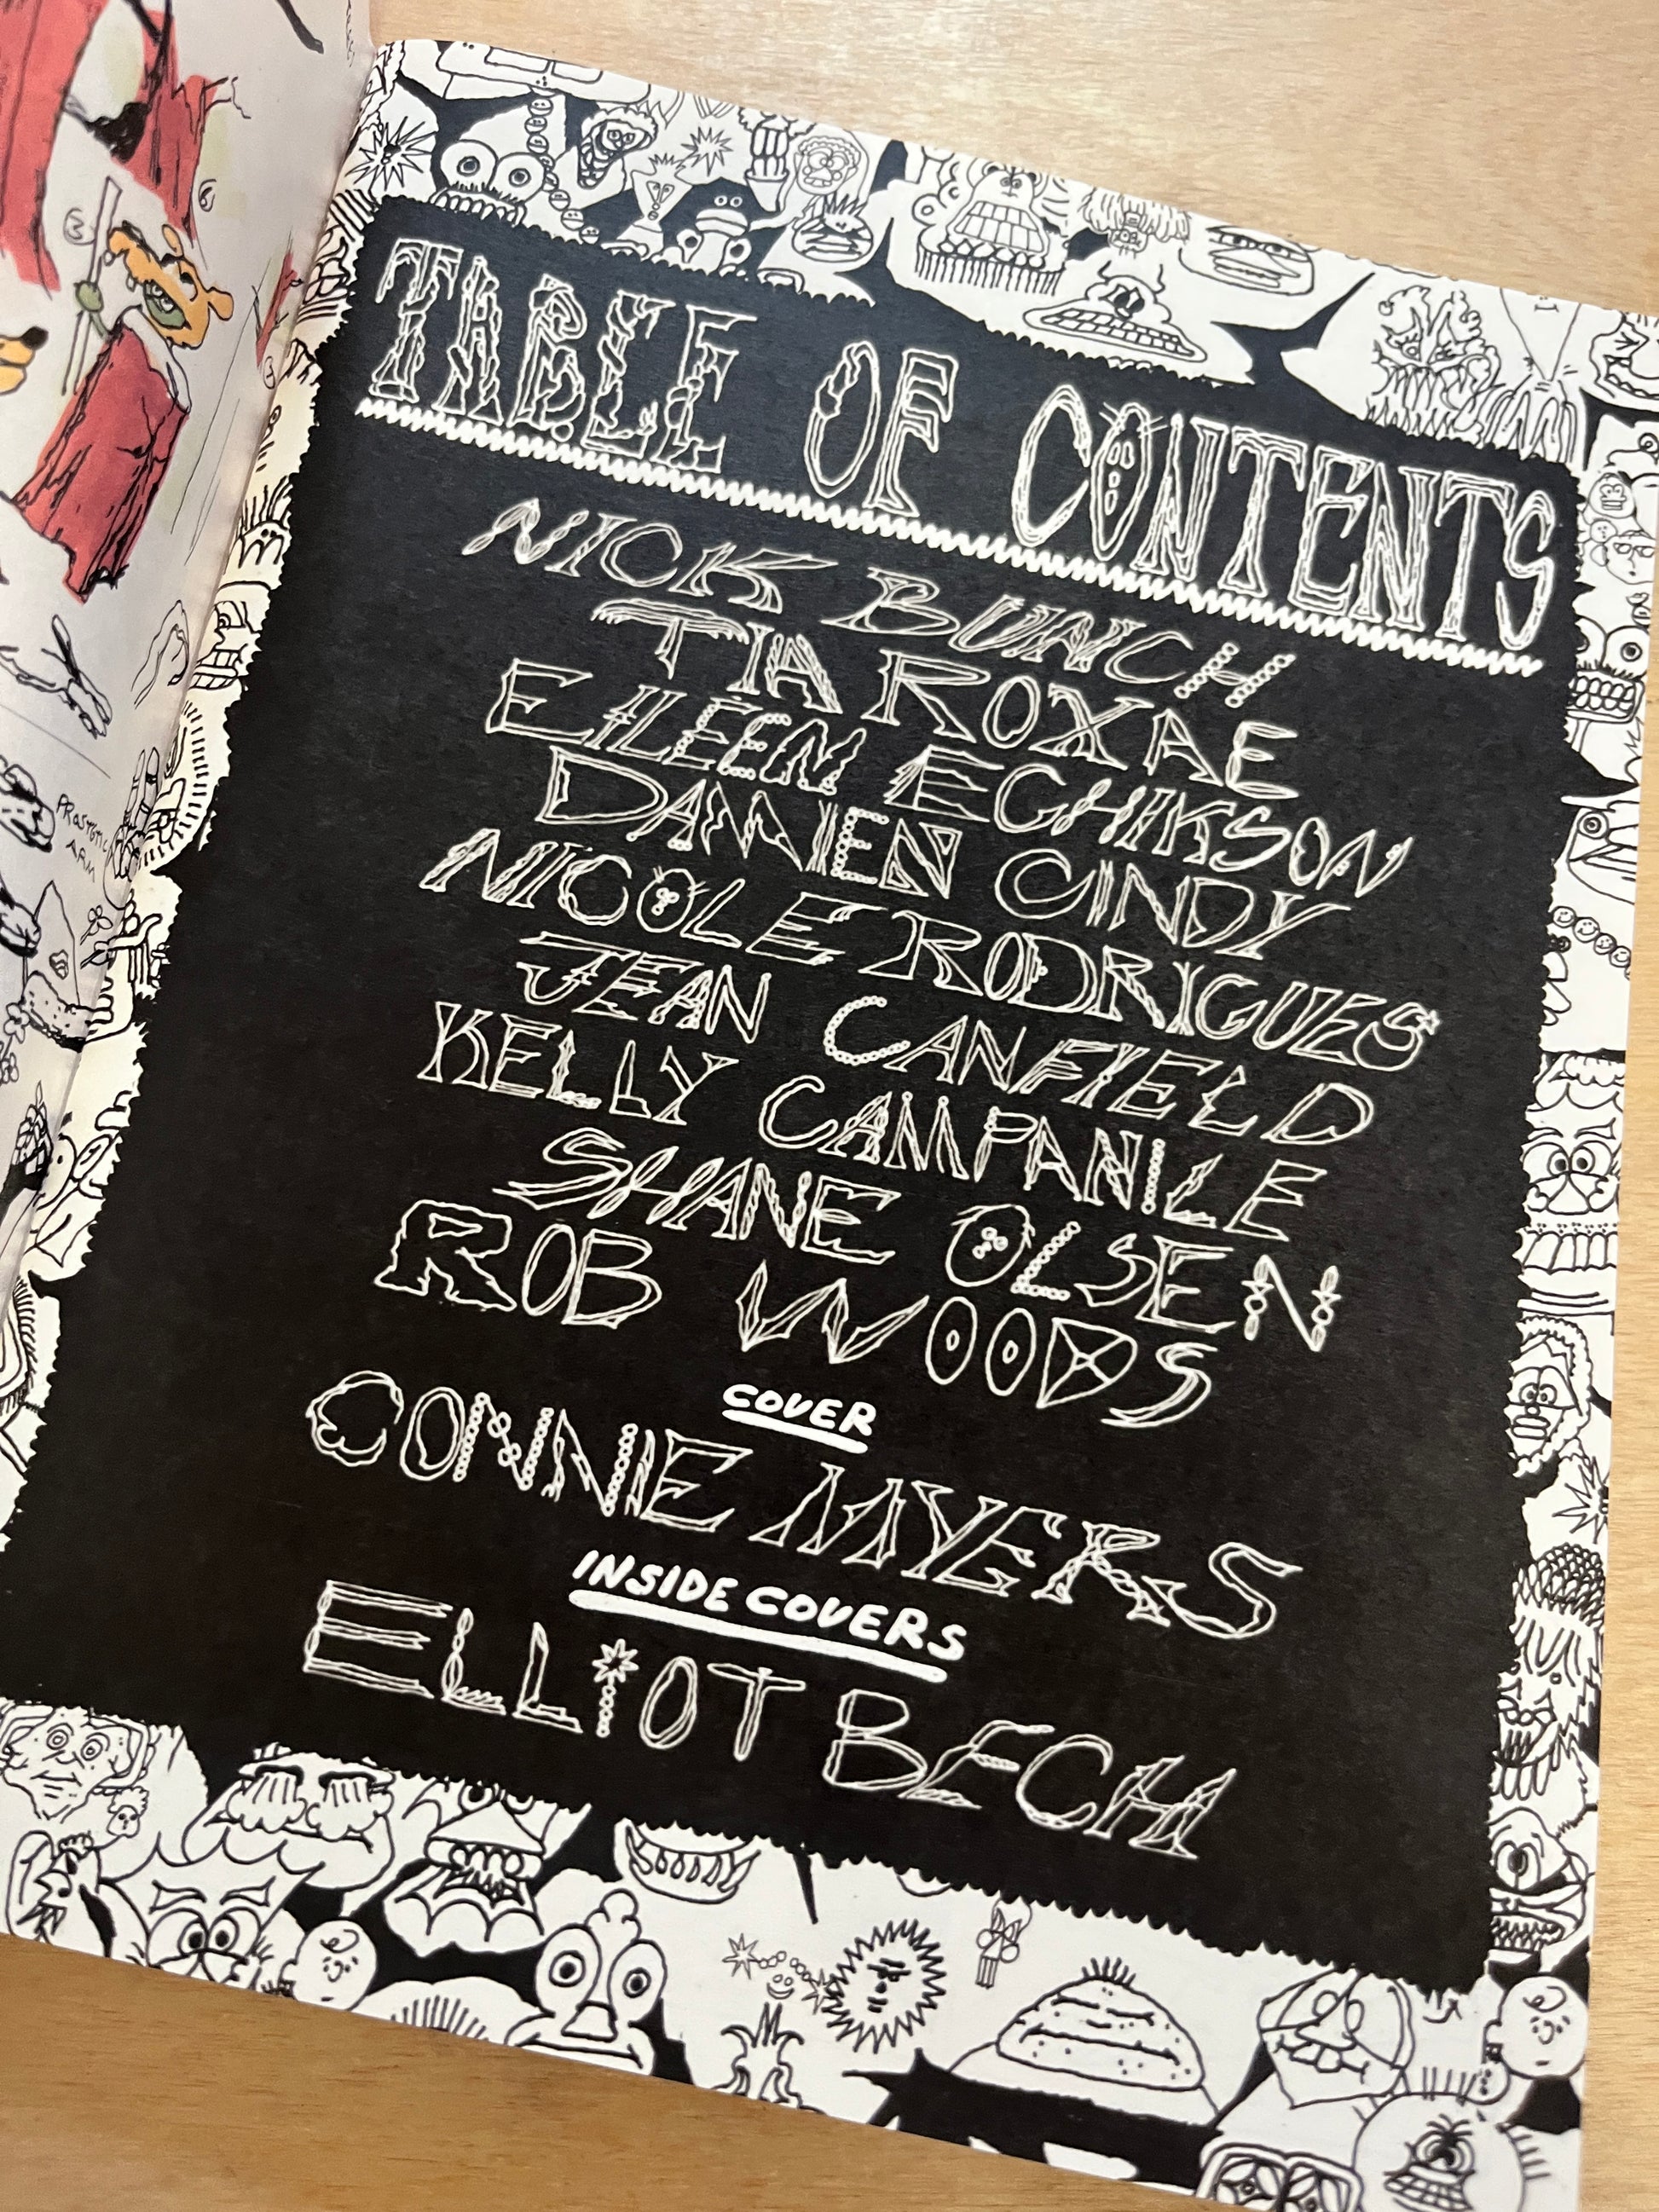 TABLE OF CONTENTS
NICK BUNCH
TIA ROXAE
EILEEN ECHIKSON
DAMIEN CINDY
NICOLE RODRIGUES
JEAN CANFIELD
KELLY CAMPANILE
SHANE OLSEN
ROB WOODS
COVER
CONNIE MYERS
INSIDE COVERS
ELLIOT BECH
ARM